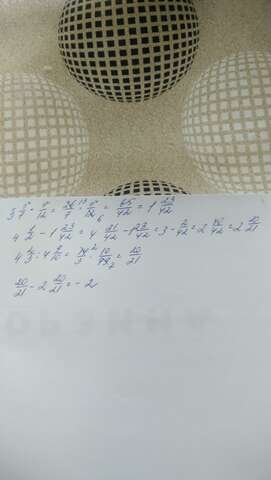 3 5/7 · 5/12 = 26/7 13 · 5/12 6 = 65/42 = 1 23/42
4 1/2 - 1 23/42 = 4 21/42 - 1 23/42 = 3 - 2/42 = 2 40/42 = 2 20/21
4 2/3 : 4 9/10 = 14/3 2 · 10/49 7 = 20/21
20/21 - 2 20/21 = - 2